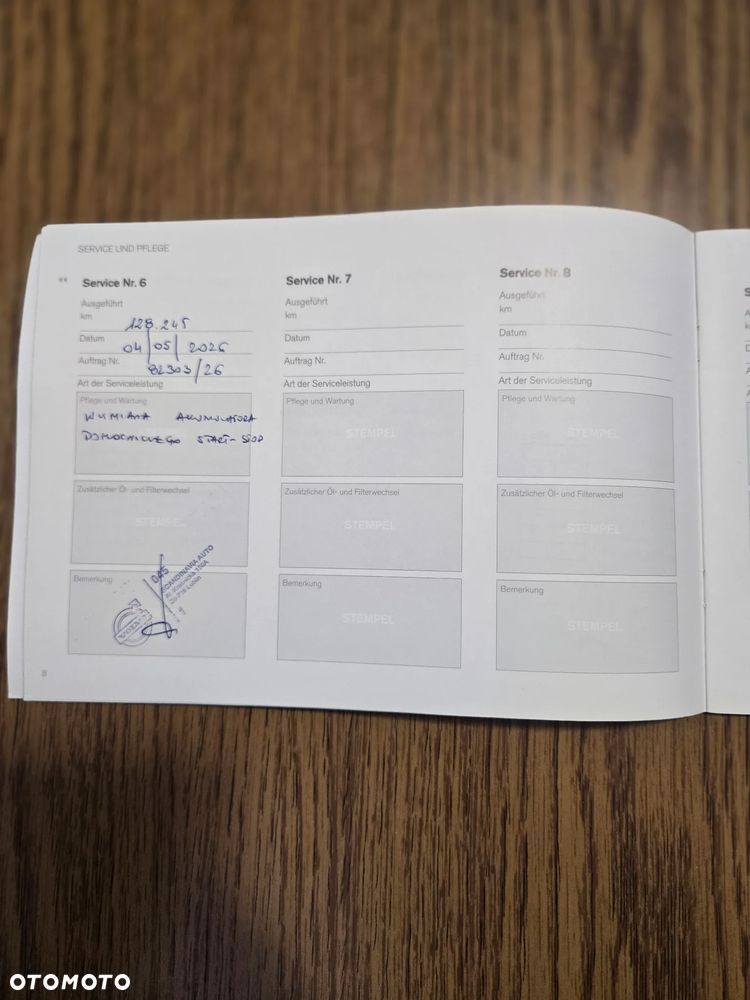 SERVICE UND PFLEGE
Service Nr. 6
Ausgeführt
km
128.245
Datum
04/05/2026
Auftrag Nr.
82303/26
Art der Serviceleistung
Pflege und Wartung
WYMIANA AKUMULATORA
POMOCNICZEGO START-STOP
Zusätzlicher Öl- und Filterwechsel
STEMPEL
Bemerkung
045
SCANDINAVIA AUTO
VOLVO
8
Service Nr. 7
Ausgeführt
km
Datum
Auftrag Nr.
Art der Serviceleistung
Pflege und Wartung
STEMPEL
Zusätzlicher Öl- und Filterwechsel
STEMPEL
Bemerkung
STEMPEL
Service Nr. 8
Ausgeführt
km
Datum
Auftrag Nr.
Art der Serviceleistung
Pflege und Wartung
STEMPEL
Zusätzlicher Öl- und Filterwechsel
STEMPEL
Bemerkung
STEMPEL
OTOMOTO